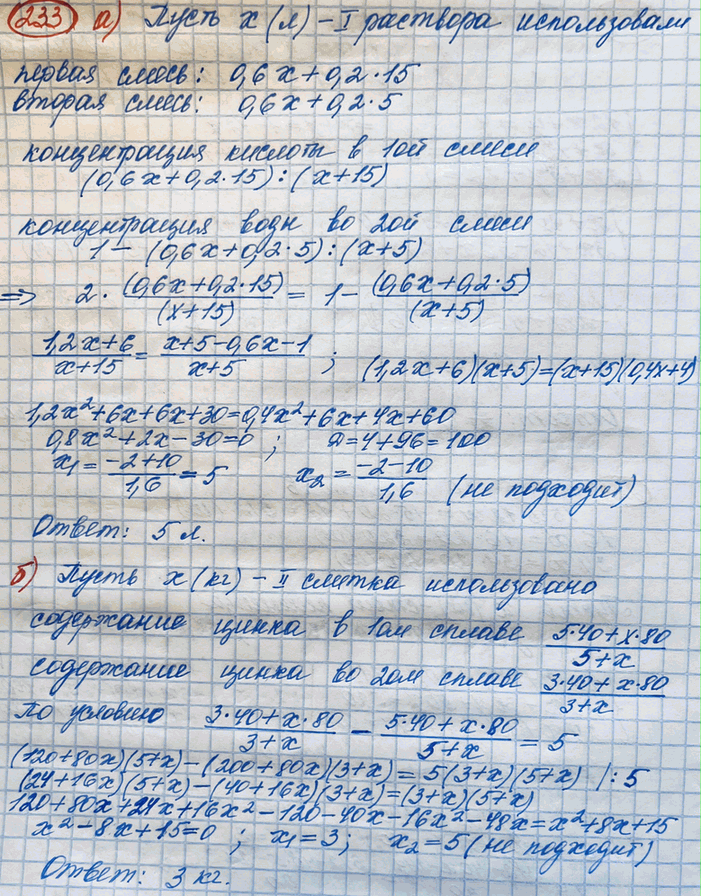 233 а) Пусть х (л) – I раствора использовали
первая смесь: 0,6х+0,2·15
вторая смесь: 0,6х+0,2·5
концентрация кислоты в 1ой смеси
(0,6х+0,2·15):(х+15)
концентрация воды во 2ой смеси
1 – (0,6х+0,2·5):(х+5)
=> 2· (0,6х+0,2·15)/(х+15) = 1– (0,6х+0,2·5)/(х+5)
(1,2х+6)/(х+15) = (х+5–0,6х–1)/(х+5) ; (1,2х+6)(х+5)=(х+15)(0,4х+4)
1,2х²+6х+6х+30=0,4х²+6х+4х+60
0,8х²+2х–30=0 ; D=4+96=100
х₁= (–2+10)/1,6 = 5 х₂= (–2–10)/1,6 (не подходит)
Ответ: 5 л.
б) Пусть х (кг) – II слитка использовано
содержание цинка в 1ом сплаве (5·40+х·80)/(5+х)
содержание цинка во 2ом сплаве (3·40+х·80)/(3+х)
по условию (3·40+х·80)/(3+х) – (5·40+х·80)/(5+х) = 5
(120+80х)(5+х)–(200+80х)(3+х)=5(3+х)(5+х) |:5
(24+16х)(5+х)–(40+16х)(3+х)=(3+х)(5+х)
120+80х+24х+16х²–120–40х–16х²–48х=х²+8х+15
х²–8х+15=0 ; х₁=3; х₂=5 (не подходит)
Ответ: 3 кг.